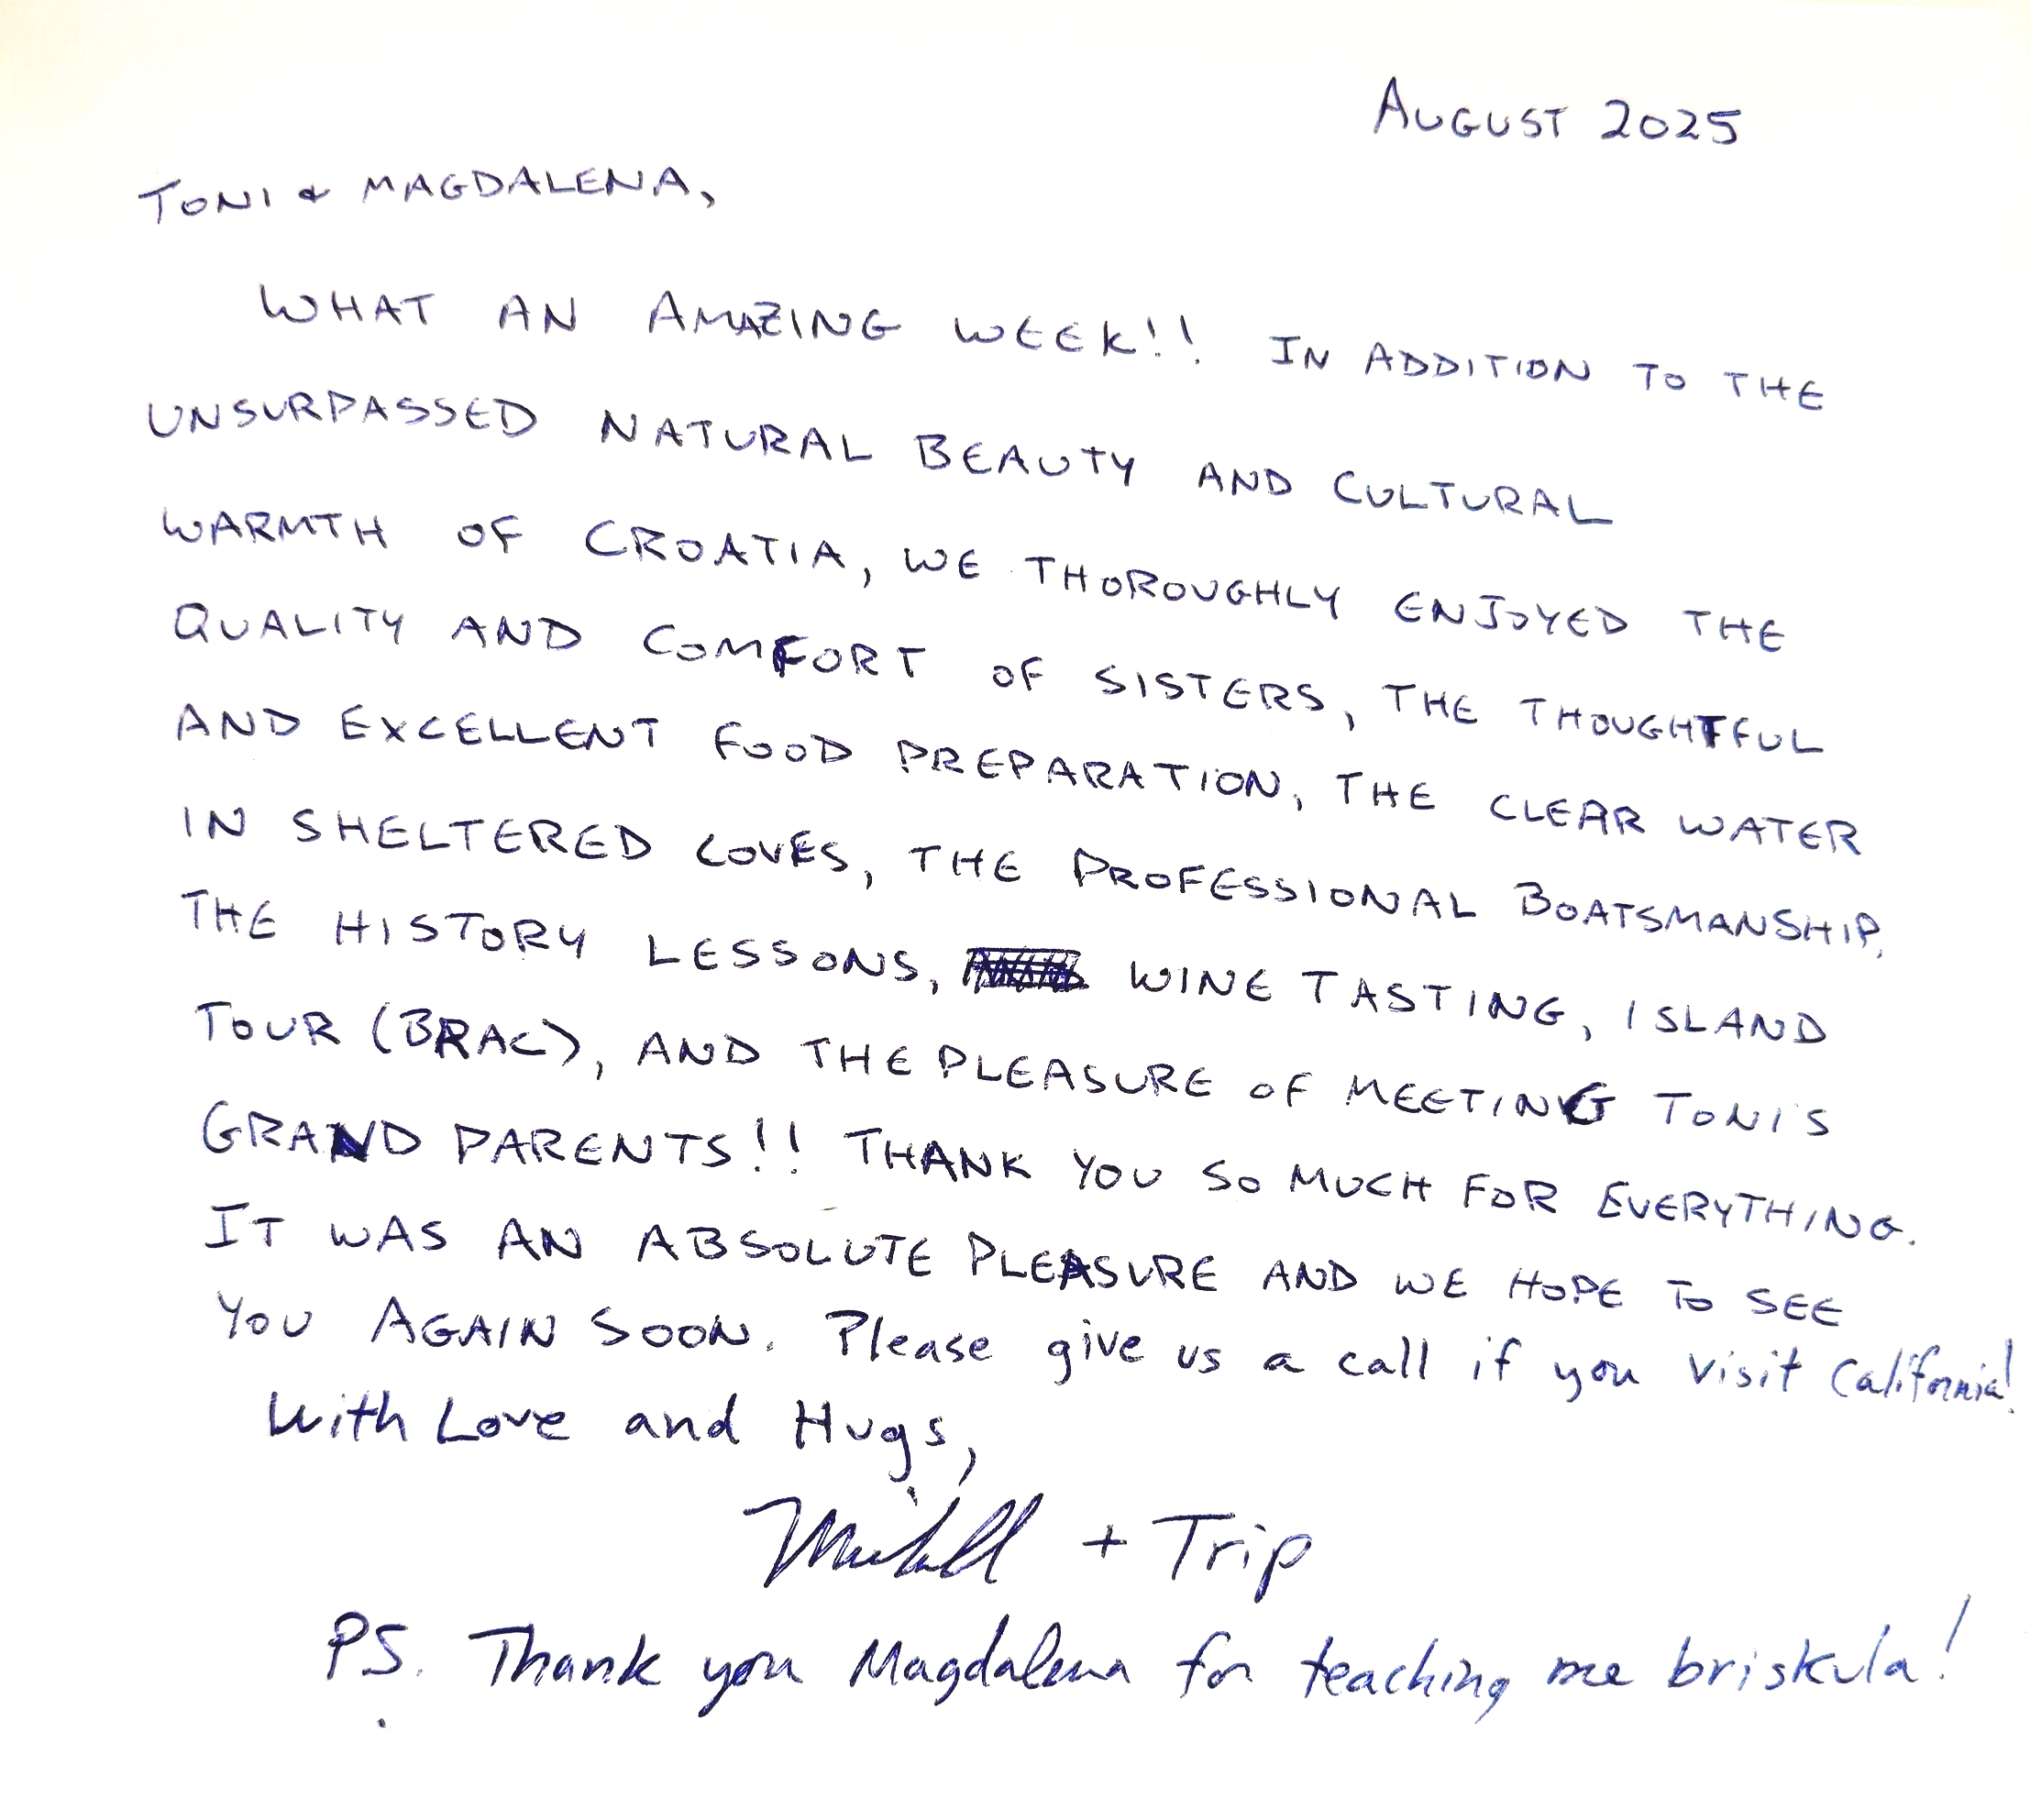 AUGUST 2025
TONI & MAGDALENA,
WHAT AN AMAZING WEEK!! IN ADDITION TO THE
UNSURPASSED NATURAL BEAUTY AND CULTURAL
WARMTH OF CROATIA, WE THOROUGHLY ENJOYED THE
QUALITY AND COMFORT OF SISTERS, THE THOUGHTFUL
AND EXCELLENT FOOD PREPARATION, THE CLEAR WATER
IN SHELTERED COVES, THE PROFESSIONAL BOATSMANSHIP,
THE HISTORY LESSONS, WINE TASTING, ISLAND
TOUR (BRAC), AND THE PLEASURE OF MEETING TONI'S
GRAND PARENTS!! THANK YOU SO MUCH FOR EVERYTHING.
IT WAS AN ABSOLUTE PLEASURE AND WE HOPE TO SEE
YOU AGAIN SOON. Please give us a call if you visit California!
With Love and Hugs,
+ Trip
PS. Thank you Magdalena for teaching me briskula!